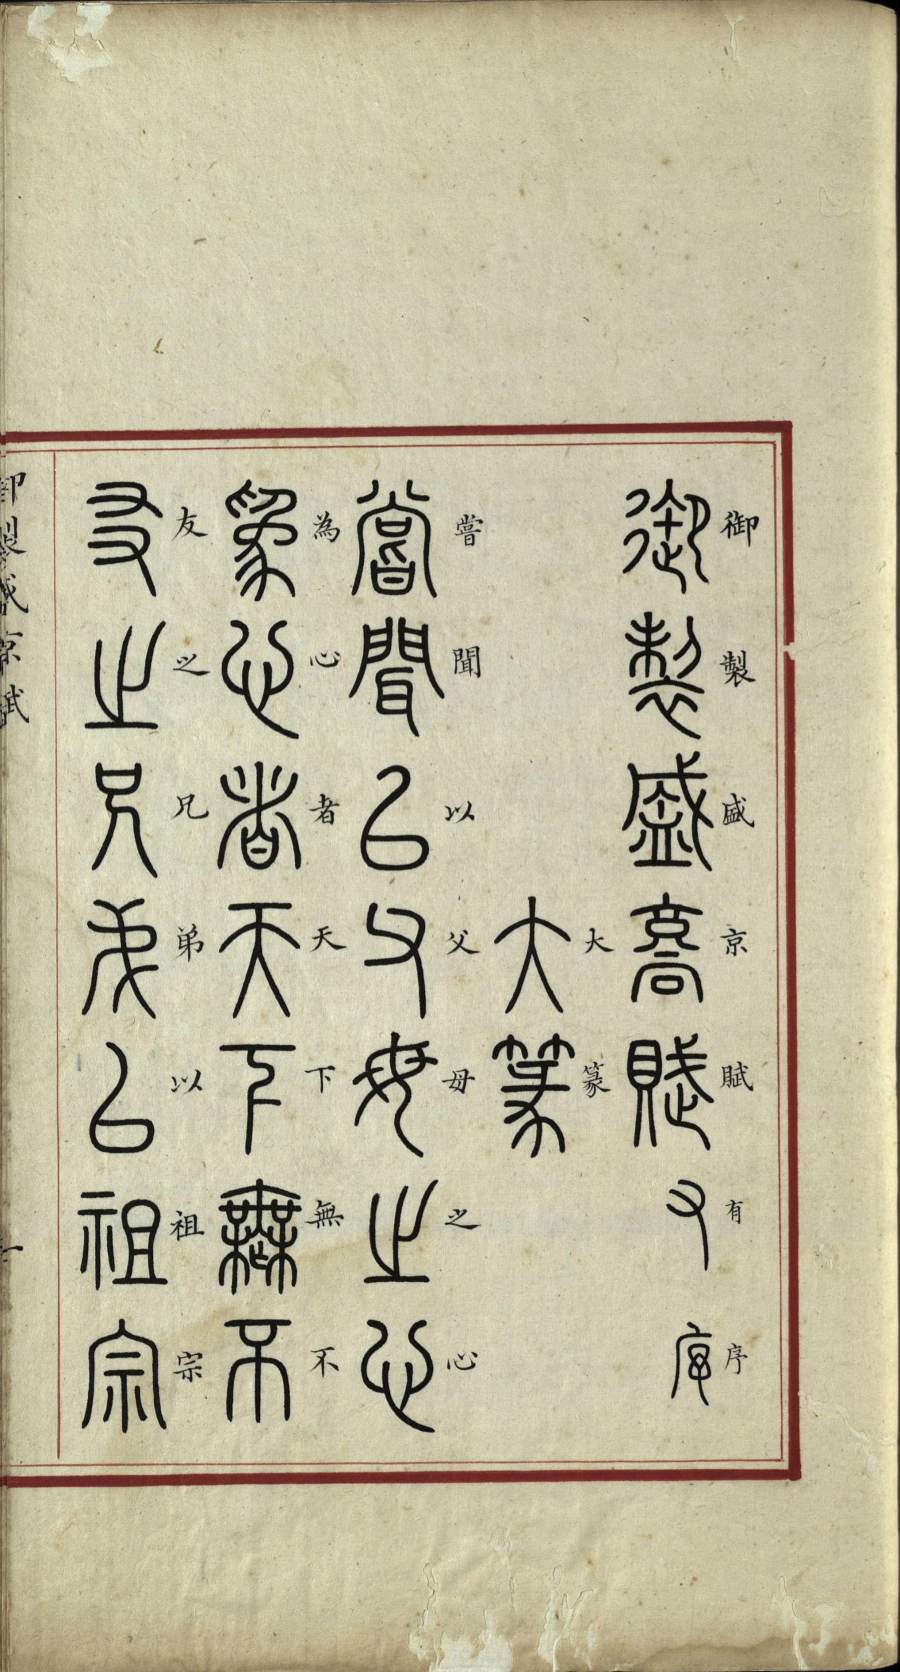 御製盛京賦有序
大篆
嘗聞以父母之心
為心者天下無不
友之兄弟以祖宗
御製盛京賦
一